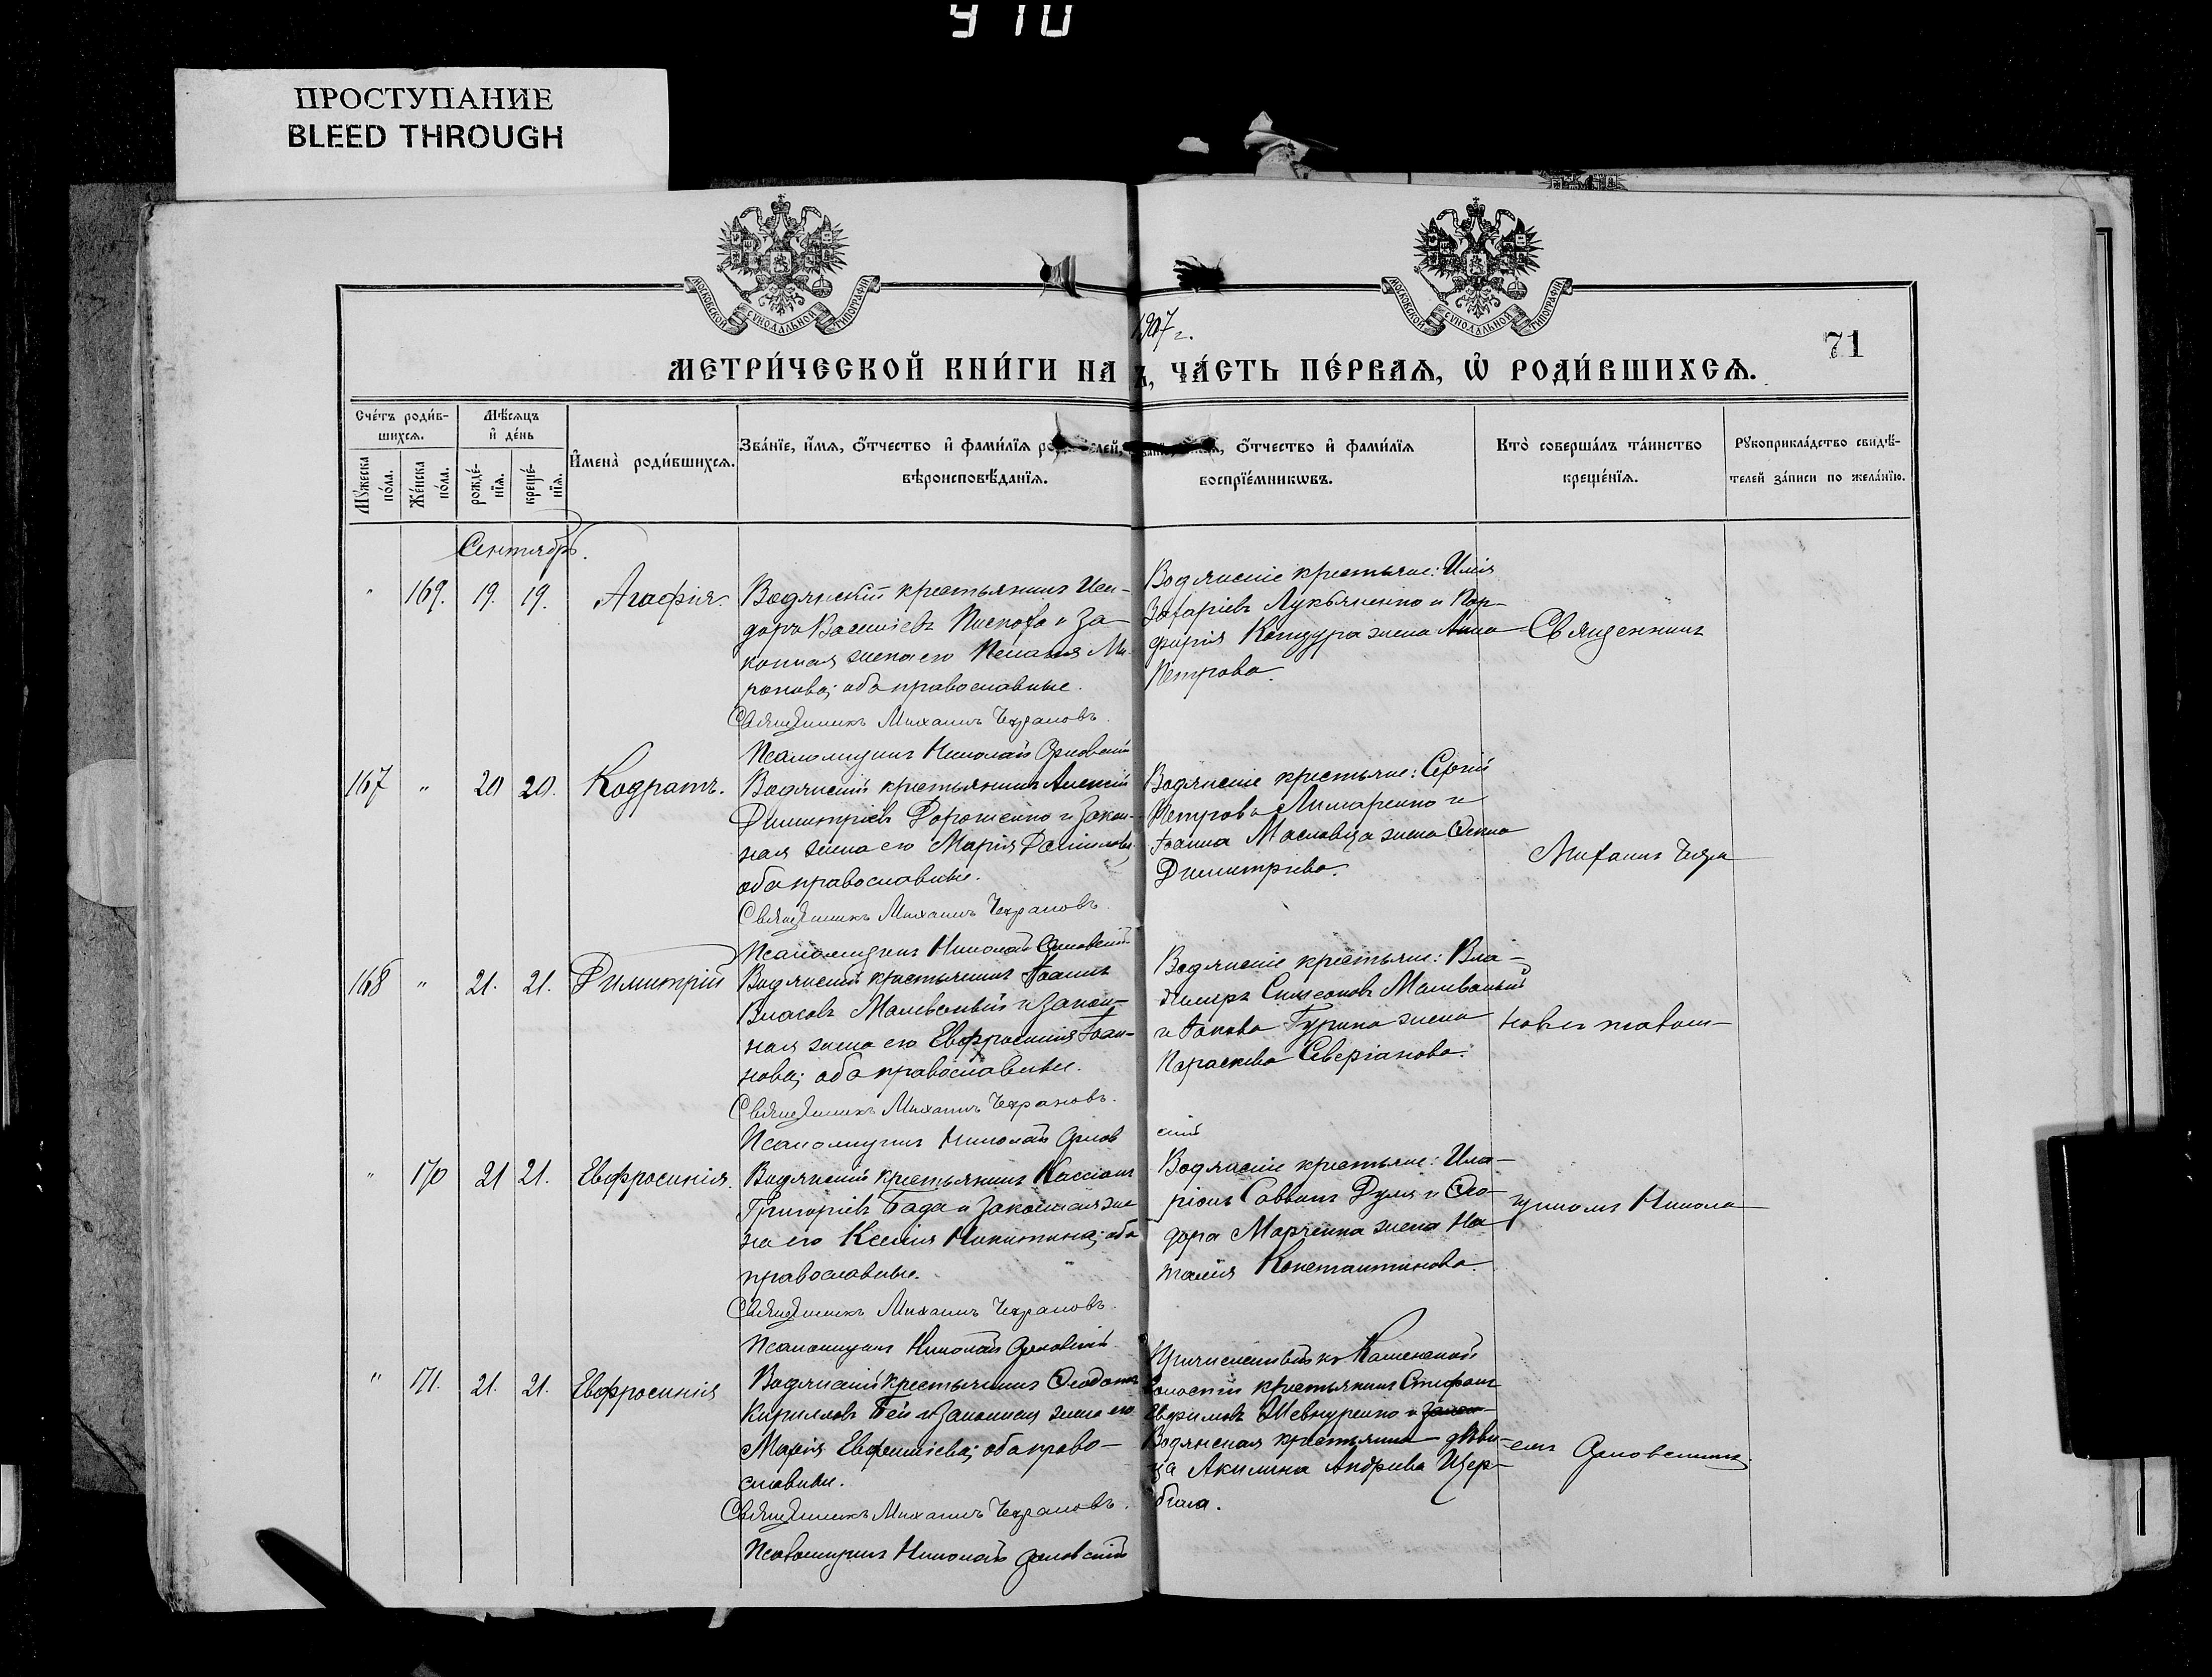 910
ПРОСТУПАНИЕ
BLEED THROUGH
МОСКОВСКОЙ СѴНОДАЛЬНОЙ ТИПОГРАФІИ
МОСКОВСКОЙ СѴНОДАЛЬНОЙ ТИПОГРАФІИ
1907 г.
71
МЕТРИ́ЧЕСКОЙ КНИ́ГИ НА ЧА́СТЬ ПЕ́РВАѦ, Ѡ҆ РОДИ́ВШИХСѦ.
Сче́тъ роди́в-
шихсѧ.
Мꙋ́жеска по́ла.
Же́нска по́ла.
Мѣ́сѧцъ
и҆ де́нь
рожде́-
нїѧ.
креще́-
нїѧ.
И҆мена̀ роди́вшихсѧ.
Зва́нїе, и҆́мѧ, о҆́тчество и҆ фами́лїѧ
вѣроисповѣ́данїѧ.
о҆́тчество и҆ фами́лїѧ
воспрїе́мникѡвъ.
Кто̀ соверша́лъ та́инство
креще́нїѧ.
Рꙋкоприкла́дство свидѣ́-
телей за́писи по жела́нїю.
Сентябрь.
" 169. 19. 19. Агафія.
Водянскій крестьянинъ Иси-
доръ Васильевъ и за-
конная жена его Пелагія Ми-
ронова; оба православные.
Священникъ Михаилъ Чехрановъ.
Псаломщикъ Николай Орловскій
Водянскіе крестьяне: Илія
Захаріевъ Лукьяненко и Пор-
фирія Кондура жена Анна
Петрова.
Священникъ
167 " 20 20. Кодратъ.
Водянскій крестьянинъ Алексій
Димитріевъ Дорошенко и закон-
ная жена его Марія Даніилова;
оба православные.
Священникъ Михаилъ Чехрановъ.
Псаломщикъ Николай Орловскій
Водянскіе крестьяне: Сергій
Петровъ Лимаренко и
Іоанна Масловца жена
Димитріева.
Михаилъ Чехра-
168 " 21. 21. Димитрій
Водянскій крестьянинъ Іоаннъ
Власовъ Маливаный и закон-
ная жена его Евфросинія Іоан-
нова; оба православные.
Священникъ Михаилъ Чехрановъ.
Псаломщикъ Николай Орлов
скій
Водянскіе крестьяне: Вла-
димиръ Симеоновъ Маливаный
и Іакова Гурина жена
Параскева Северіанова.
новъ съ псалом-
" 170 21 21. Евфросинія.
Водянскій крестьянинъ Кассіанъ
Григоріевъ Бада и законная же
на его Ксенія Никитина; оба
православные.
Священникъ Михаилъ Чехрановъ.
Псаломщикъ Николай Орловскій
Водянскіе крестьяне: Ила-
ріонъ Саввинъ Дуля и Ѳео-
дора Марченка жена На
талія Константинова.
щикомъ Никола-
" 171. 21. 21. Евфросинія
Водянскій крестьянинъ Ѳеодотъ
Кирилловъ Бей и законная жена его
Марія Евфиміева; оба право-
славные.
Священникъ Михаилъ Чехрановъ.
Псаломщикъ Николай Орловскій
Причисленный къ Каменской
волости крестьянинъ Стефанъ
Евфимовъ Шевкуренко и закон-
Водянская крестьянка дѣви-
ца Акилина Андреева Щер-
бина.
емъ Орловскимъ.